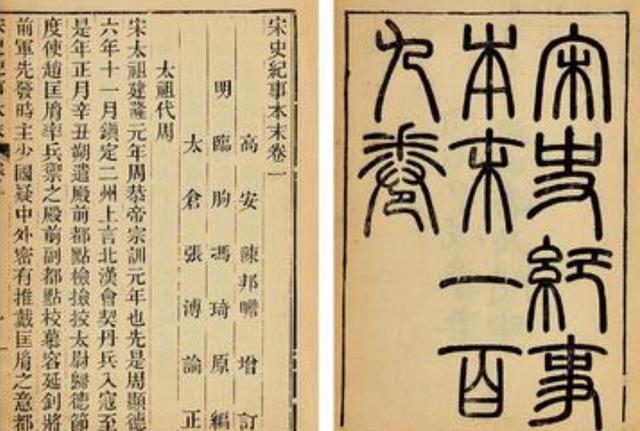 宋史紀事
本末一百
九卷
宋史紀事本末卷一
高安陳邦瞻增訂
明臨朐馮琦原編
太倉張溥論正
太祖代周
宋太祖建隆元年周恭帝宗訓元年也先是周顯德
六年十一月鎮定二州上言北漢會契丹兵入寇至
是年正月辛丑朔遣殿前都點檢撿挍太尉歸德節
度使趙匡胤率兵禦之殿前副都點校慕容延釗將
前軍先發時主少國疑中外密有推戴匡胤之意都